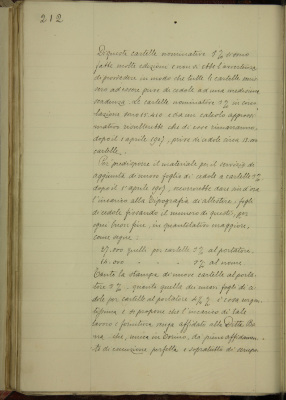 212
Di queste cartelle nominative 5% sono
fatte molte edizioni e non si ebbe l'avvertenza
di provvedere in modo che tutte le cartelle
ad essere prive di cedole ad una medesima
scadenza. Le cartelle nominative 5% in
sono e da un calcolo
che di esse rimarranno,
dopo il 1 aprile 1907, prive di cedole circa
cartelle.
Per predisporre il materiale per il servizio di
aggiunta di nuovi fogli di cedole a cartelle 5%
dopo il 1 aprile 1907, occorrerebbe dare sin d'ora
l'incarico alla Tipografia di allestire i fogli
di cedole fissando il numero di questi, per
ogni buon fine, in quantitativo maggiore,
come segue:
27.000 quelli per cartelle 5% al portatore
5% al nome.
Tanto la stampa di nuove cartelle al porta-
tore 5%, quanto quella dei nuovi fogli di ce-
dole per cartelle al portatore 4½% è cosa urgen-
tissima, e si propone che l'incarico di tale
lavoro e fornitura venga affidato alla Ditta
che, unica in Torino, dà pieno affidamen-
to di esecuzione perfetta e sopratutto di